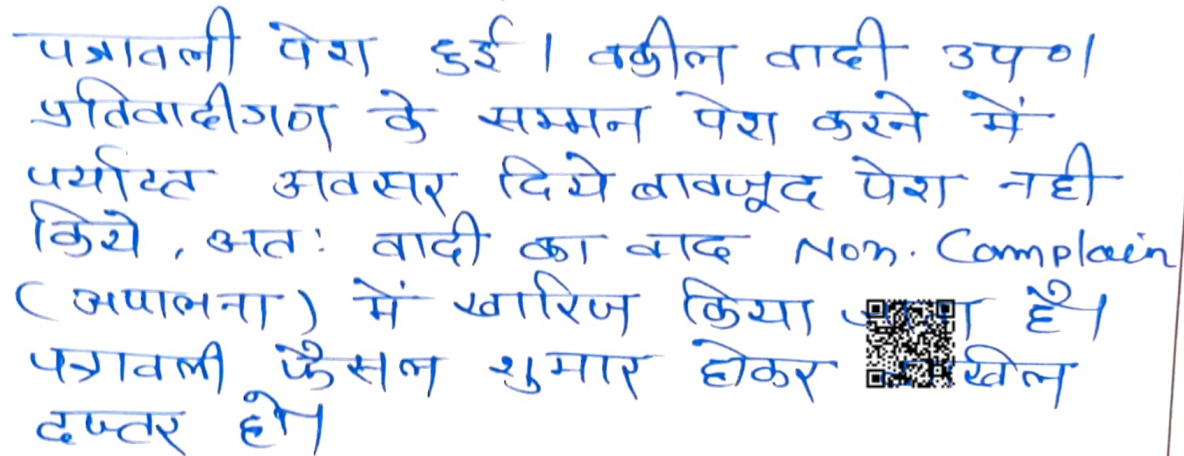 पत्रावली पेश हुई। वकील वादी उप०।
प्रतिवादीगण के सम्मन पेश करने में
पर्याप्त अवसर दिये बावजूद पेश नही
किये, अतः वादी का वाद Non. Complain
(अपालना) में खारिज किया है।
पत्रावली फैसल शुमार होकर
दफ्तर हो।